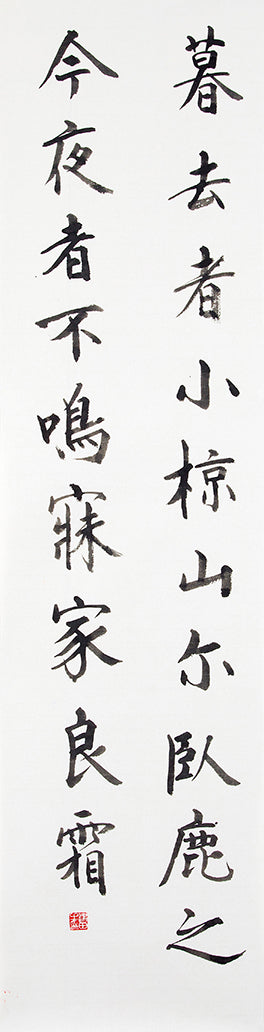 暮去者小椋山尓臥鹿之
今夜者不鳴寐家良霜